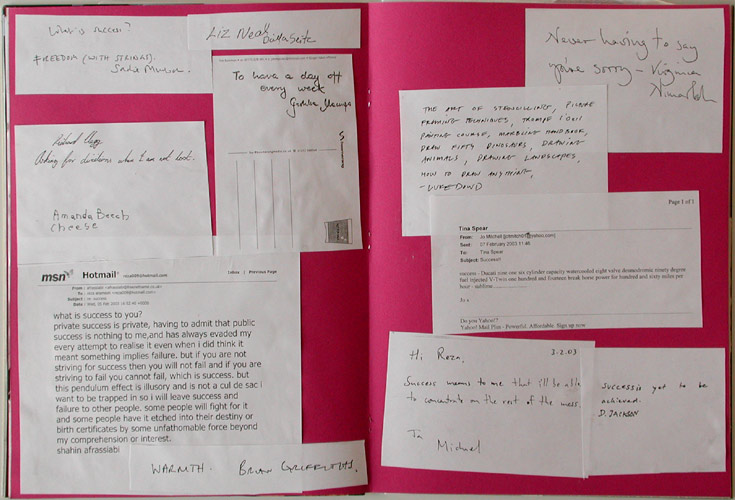 What is success?
FREEDOM (WITH STRINGS).
Sadie
LIZ Neal
To have a day off
every week
Richard
Asking for directions when I am not lost.
Amanda Beech
cheese
msn Hotmail
Inbox | Previous Page
From :
To :
Subject : success
Date : Wed, 05 Mar 2003
what is success to you?
private success is private, having to admit that public
success is nothing to me,and has always evaded my
every attempt to realise it even when i did think it
meant something implies failure. but if you are not
striving for success then you will not fail and if you are
striving to fail you cannot fail, which is success. but
this pendulum effect is illusory and is not a cul de sac i
want to be trapped in so i will leave success and
failure to other people. some people will fight for it
and some people have it etched into their destiny or
birth certificates by some unfathomable force beyond
my comprehension or interest.
shahin afrassiabi
WARMTH. BRIAN GRIFFITHS.
Never having to say
you're sorry - Virginia
THE ART OF STENCILLING, PICTURE
FRAMING TECHNIQUES, TROMPE L'OEIL
PAINTING COURSE, MARBLING HANDBOOK,
DRAW FIFTY DINOSAURS, DRAWING
ANIMALS, DRAWING LANDSCAPES,
HOW TO DRAW ANYTHING,
- LUKE DOWD
Page 1 of 1
Tina Spear
From: Jo Mitchell
Sent: 07 February 2003 11:46
To: Tina Spear
Subject: Success!!
success - Ducati nine one six cylinder capacity watercooled eight valve desmodromic ninety degree
fuel injected V-Two one hundred and fourteen break horse power for hundred and sixty miles per
hour - sublime.
Jo x
Do you Yahoo!?
Yahoo! Mail Plus - Powerful. Affordable. Sign up now
Hi Roza, 3.2.03
Success means to me that i'll be able
to concentrate on the rest of the mess.
Ta
Michael
SUCCESS is yet to be
achieved.
D. JACKSON